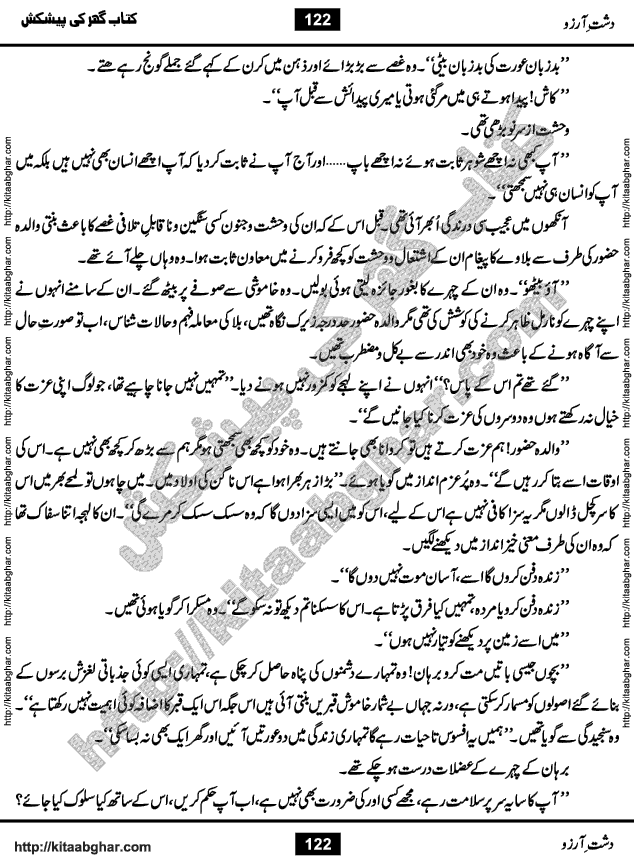 کتاب گھر کی پیشکش 122 دشتِ آرزو
’’بدزبان عورت کی بدزبان بیٹی‘‘۔ وہ غصے سے بڑبڑائے اور ذہن میں کرن کے کہے گئے جملے گونج رہے تھے۔
’’کاش! پیدا ہوتے ہی میں مر گئی ہوتی یا میری پیدائش سے قبل آپ‘‘۔
وحشت از سر نو بڑھی تھی۔
’’آپ کبھی نہ اچھے شوہر ثابت ہوئے نہ اچھے باپ...... اور آج آپ نے ثابت کر دیا کہ آپ اچھے انسان بھی نہیں ہیں بلکہ میں
آپ کو انسان ہی نہیں سمجھتی‘‘۔
آنکھوں میں عجیب سی درندگی اُبھر آئی تھی۔ قبل اس کے کہ ان کی وحشت و جنون کسی سنگین و ناقابلِ تلافی غصے کا باعث بنتی والدہ
حضور کی طرف سے بلاوے کا پیغام ان کے اشتعال و وحشت کو کچھ فرو کرنے میں معاون ثابت ہوا۔ وہ وہاں چلے آئے تھے۔
’’آؤ بیٹھو‘‘۔ وہ ان کے چہرے کا بغور جائزہ لیتی ہوئی بولیں۔ وہ خاموشی سے صوفے پر بیٹھ گئے۔ ان کے سامنے انہوں نے
اپنے چہرے کو نارمل ظاہر کرنے کی کوشش کی تھی مگر والدہ حضور حد درجہ زیرک نگاہ تھیں، بلا کی معاملہ فہم و حالات شناس، اب تو صورتِ حال
سے آگاہ ہونے کے باعث وہ خود بھی اندر سے بے کل و مضطرب تھیں۔
’’گئے تھے تم اس کے پاس؟‘‘ انہوں نے اپنے لہجے کو کمزور نہیں ہونے دیا۔ ’’تمہیں نہیں جانا چاہیے تھا، جو لوگ اپنی عزت کا
خیال نہ رکھتے ہوں وہ دوسروں کی عزت کرنا کیا جانیں گے‘‘۔
’’والدہ حضور! ہم عزت کرتے ہیں تو کروانا بھی جانتے ہیں۔ وہ خود کو کچھ بھی سمجھتی ہو گر ہم سے بڑھ کر کچھ بھی نہیں ہے۔ اس کی
اوقات اسے بتا کر رہیں گے‘‘۔ وہ پُرعزم انداز میں گویا ہوئے۔ ’’بڑا زہر بھرا ہوا ہے اس ناگن کی اولاد میں۔ میں چاہوں تو لمحے بھر میں اس
کا سر کچل ڈالوں مگر یہ سزا کافی نہیں ہے اس کے لیے، اس کو میں ایسی سزا دوں گا کہ وہ سسک سسک کر مرے گی‘‘۔ ان کا لہجہ اتنا سفاک تھا
کہ وہ ان کی طرف معنی خیز انداز میں دیکھنے لگیں۔
’’زندہ دفن کروں گا اسے، آسان موت نہیں دوں گا‘‘۔
’’زندہ دفن کرو یا مردہ، تمہیں کیا فرق پڑتا ہے۔ اس کا سسکنا تم دیکھ تو نہ سکو گے‘‘۔ وہ مسکرا کر گویا ہوئی تھیں۔
’’میں اسے زمین پر دیکھنے کو تیار نہیں ہوں‘‘۔
’’بچوں جیسی باتیں مت کرو برہان! وہ تمہارے دشمنوں کی پناہ حاصل کر چکی ہے، تمہاری ایسی کوئی جذباتی لغزش برسوں کے
بنائے گئے اصولوں کو مسمار کر سکتی ہے، ورنہ جہاں بے شمار خاموش قبریں بنتی آئی ہیں اس جگہ اس ایک قبر کا اضافہ کوئی اہمیت نہیں رکھتا ہے‘‘۔
وہ سنجیدگی سے گویا تھیں۔ ’’ہمیں یہ افسوس تاحیات رہے گا تمہاری زندگی میں دو عورتیں آئیں اور گھر ایک بھی نہ بسا سکی‘‘۔
برہان کے چہرے کے عضلات درست ہو چکے تھے۔
’’آپ کا سایہ سر پر سلامت رہے، مجھے کسی اور کی ضرورت بھی نہیں ہے، اب آپ حکم کریں، اس کے ساتھ کیا سلوک کیا جائے؟
http://kitaabghar.com 122 دشتِ آرزو
http://kitaabghar.com http://kitaabghar.com http://kitaabghar.com http://kitaabghar.com http://kitaabghar.com http://kitaabghar.com
http://kitaabghar.com http://kitaabghar.com http://kitaabghar.com http://kitaabghar.com http://kitaabghar.com http://kitaabghar.com
کتاب گھر کی پیشکش
http://kitaabghar.com